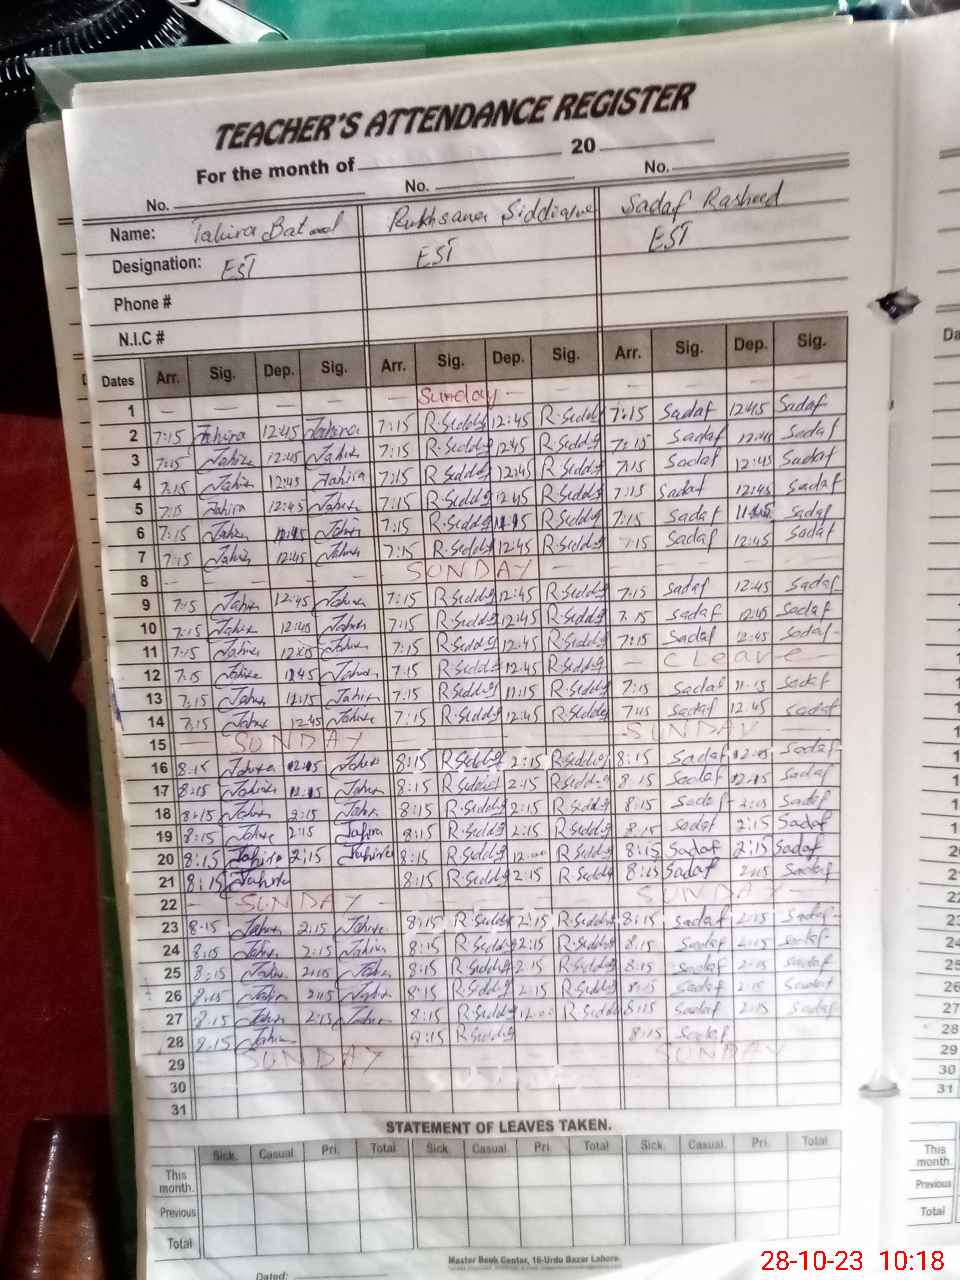 TEACHER'S ATTENDANCE REGISTER
For the month of 20
No. No. No.
Name: Tahira Batool Rukhsana Siddique Sadaf Rasheed
Designation: EST EST EST
Phone #
N.I.C #
Dates Arr. Sig. Dep. Sig. Arr. Sig. Dep. Sig. Arr. Sig. Dep. Sig.
1 Sunday
2 7:15 Tahira 12:45 Tahira 7:15 R.Siddq 12:45 R.Siddq 7:15 Sadaf 12:45 Sadaf
3 7:15 Tahira 12:45 Tahira 7:15 R.Siddq 12:45 R.Siddq 7:15 Sadaf 12:45 Sadaf
4 7:15 Tahira 12:45 Tahira 7:15 R.Siddq 12:45 R.Siddq 7:15 Sadaf 12:45 Sadaf
5 7:15 Tahira 12:45 Tahira 7:15 R.Siddq 12:45 R.Siddq 7:15 Sadaf 12:45 Sadaf
6 7:15 Tahira Tahira 7:15 R.Siddq R.Siddq 7:15 Sadaf Sadaf
7 7:15 Tahira 12:45 Tahira 7:15 R.Siddq 12:45 R.Siddq 7:15 Sadaf 12:45 Sadaf
8 SUNDAY
9 7:15 Tahira 12:45 Tahira 7:15 R.Siddq 12:45 R.Siddq 7:15 Sadaf 12:45 Sadaf
10 7:15 Tahira 12:45 Tahira 7:15 R.Siddq 12:45 R.Siddq 7:15 Sadaf 12:45 Sadaf
11 7:15 Tahira 12:45 Tahira 7:15 R.Siddq 12:45 R.Siddq 7:15 Sadaf 12:45 Sadaf
12 7:15 Tahira Tahira 7:15 R.Siddq 12:45 R.Siddq C Leave
13 7:15 Tahira Tahira 7:15 R.Siddq 11:15 R.Siddq 7:15 Sadaf 11:15 Sadaf
14 7:15 Tahira 12:45 Tahira 7:15 R.Siddq 12:45 R.Siddq Sadaf 12:45 Sadaf
15 SUNDAY SUNDAY
16 8:15 Tahira Tahira 8:15 R.Siddq 2:15 R.Siddq 8:15 Sadaf Sadaf
17 8:15 Tahira Tahira 8:15 R.Siddq 2:15 R.Siddq 8:15 Sadaf Sadaf
18 8:15 Tahira 2:15 Tahira 8:15 R.Siddq 2:15 R.Siddq 8:15 Sadaf 2:15 Sadaf
19 8:15 Tahira 2:15 Tahira 8:15 R.Siddq 2:15 R.Siddq 8:15 Sadaf 2:15 Sadaf
20 8:15 Tahira 2:15 Tahira 8:15 R.Siddq 12:00 R.Siddq 8:15 Sadaf 2:15 Sadaf
21 8:15 Tahira 8:15 R.Siddq 2:15 R.Siddq 8:15 Sadaf 2:15 Sadaf
22 SUNDAY SUNDAY
23 8:15 Tahira 2:15 Tahira 8:15 R.Siddq 2:15 R.Siddq 8:15 Sadaf 2:15 Sadaf
24 8:15 Tahira 2:15 Tahira 8:15 R.Siddq 2:15 R.Siddq 8:15 Sadaf 2:15 Sadaf
25 8:15 Tahira 2:15 Tahira 8:15 R.Siddq 2:15 R.Siddq 8:15 Sadaf 2:15 Sadaf
26 8:15 Tahira 2:15 Tahira 8:15 R.Siddq 2:15 R.Siddq 8:15 Sadaf 2:15 Sadaf
27 8:15 Tahira 2:15 Tahira 8:15 R.Siddq 12:00 R.Siddq 8:15 Sadaf 2:15 Sadaf
28 8:15 Tahira 8:15 R.Siddq 8:15 Sadaf
29 SUNDAY SUNDAY
30
31
STATEMENT OF LEAVES TAKEN.
Sick. Casual. Pri. Total Sick. Casual. Pri. Total Sick. Casual. Pri. Total
This month.
Previous
Total
Master Book Center, 16-Urdu Bazar Lahore.
Dated:
28-10-23 10:18